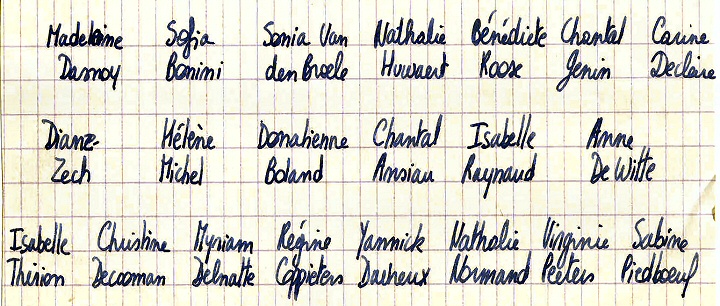 Madeleine Sofia Sonia Van Nathalie Bénédicte Chantal Carine
Dannoy Bonini den Broele Huwaert Roose Jenin Declaire
Diane Hélène Donatienne Chantal Isabelle Anne
Zech Michel Boland Ansiau Raynaud De Witte
Isabelle Christine Myriam Régine Yannick Nathalie Virginie Sabine
Thirion Decooman Delnatte Coppieters Dacheux Normand Peeters Piedboeuf